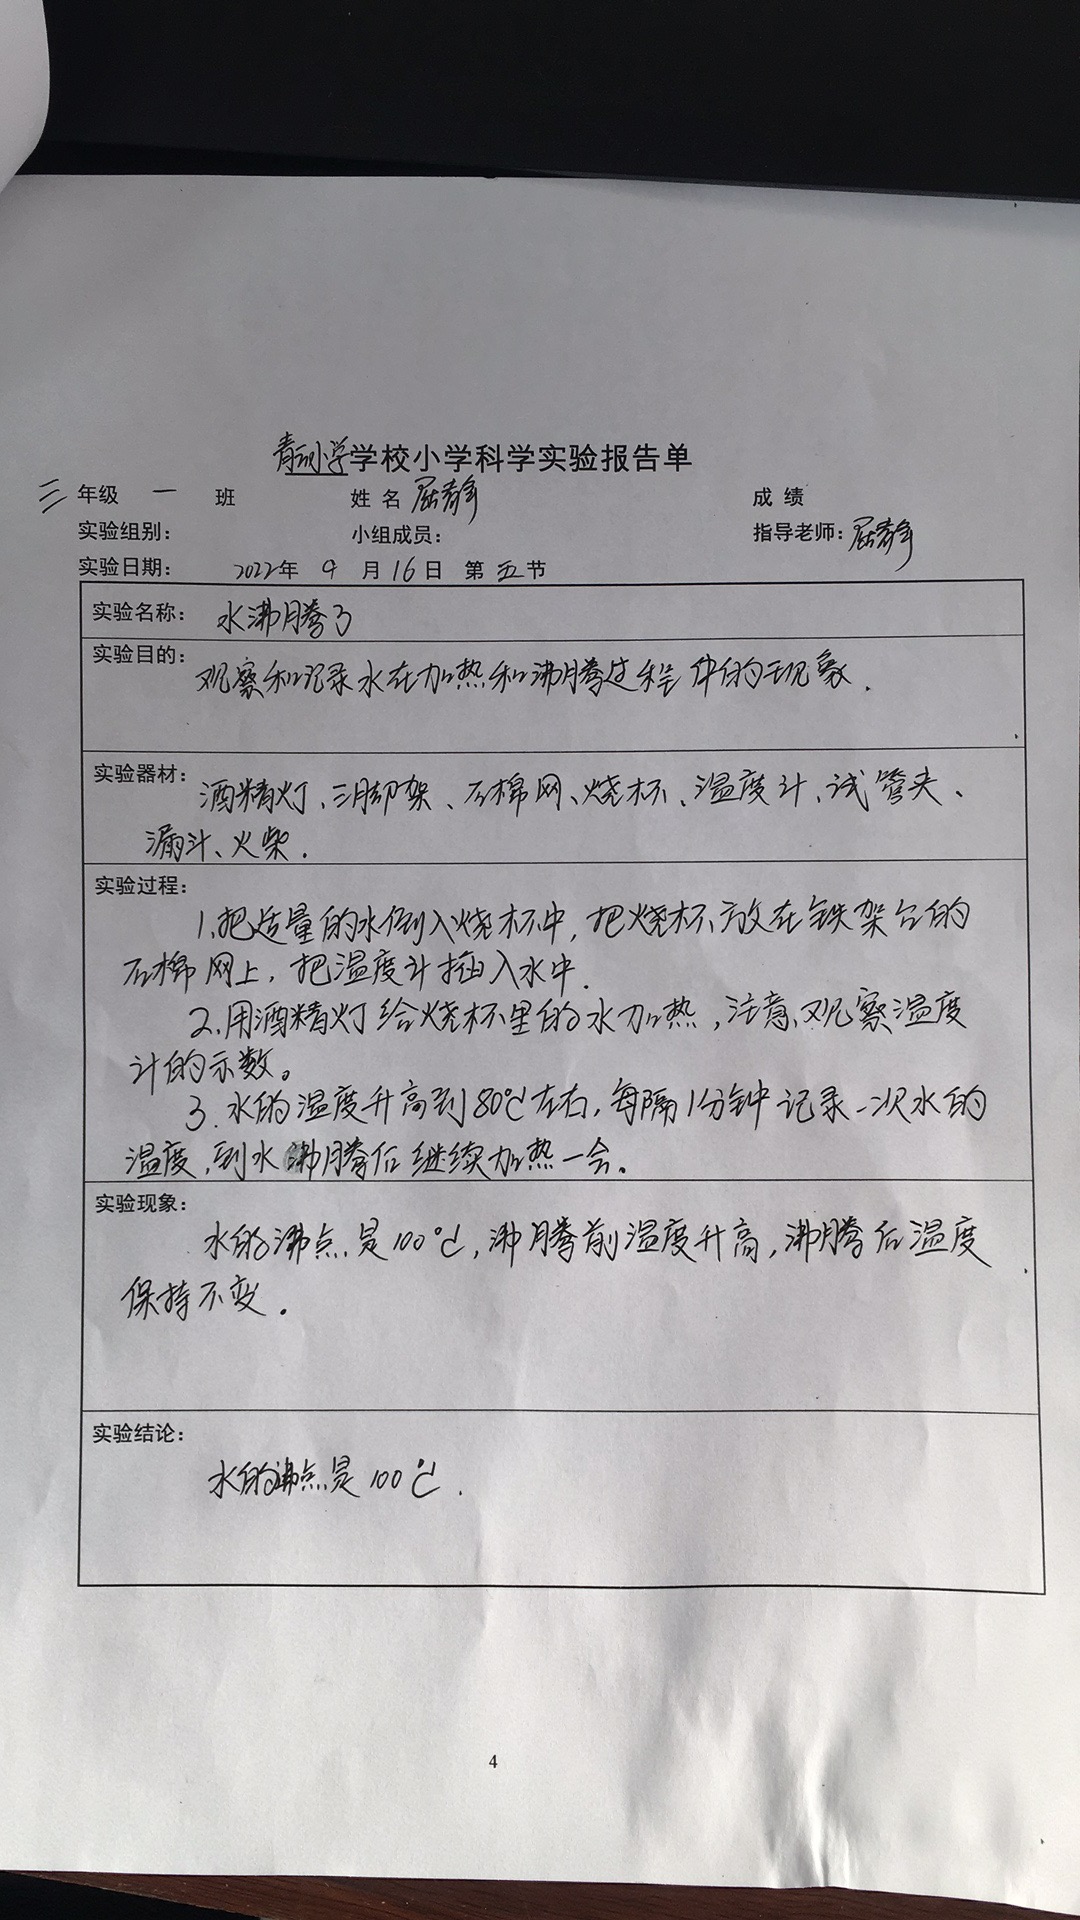 青云小学学校小学科学实验报告单
三 年级 一 班 姓 名 屈静 成 绩
实验组别： 小组成员： 指导老师：屈静
实验日期： 2022年 9 月 16 日 第 五 节
实验名称： 水沸腾了
实验目的：
观察和记录水在加热和沸腾过程中的现象.
实验器材：
酒精灯、三脚架、石棉网、烧杯、温度计、试管夹、
漏斗、火柴.
实验过程：
1.把适量的水倒入烧杯中,把烧杯放在铁架台的
石棉网上,把温度计插入水中.
2.用酒精灯给烧杯里的水加热,注意观察温度
计的示数。
3.水的温度升高到80℃左右,每隔1分钟记录一次水的
温度,到水沸腾后继续加热一会。
实验现象：
水的沸点是100℃,沸腾前温度升高,沸腾后温度
保持不变.
实验结论：
水的沸点是100℃.
4